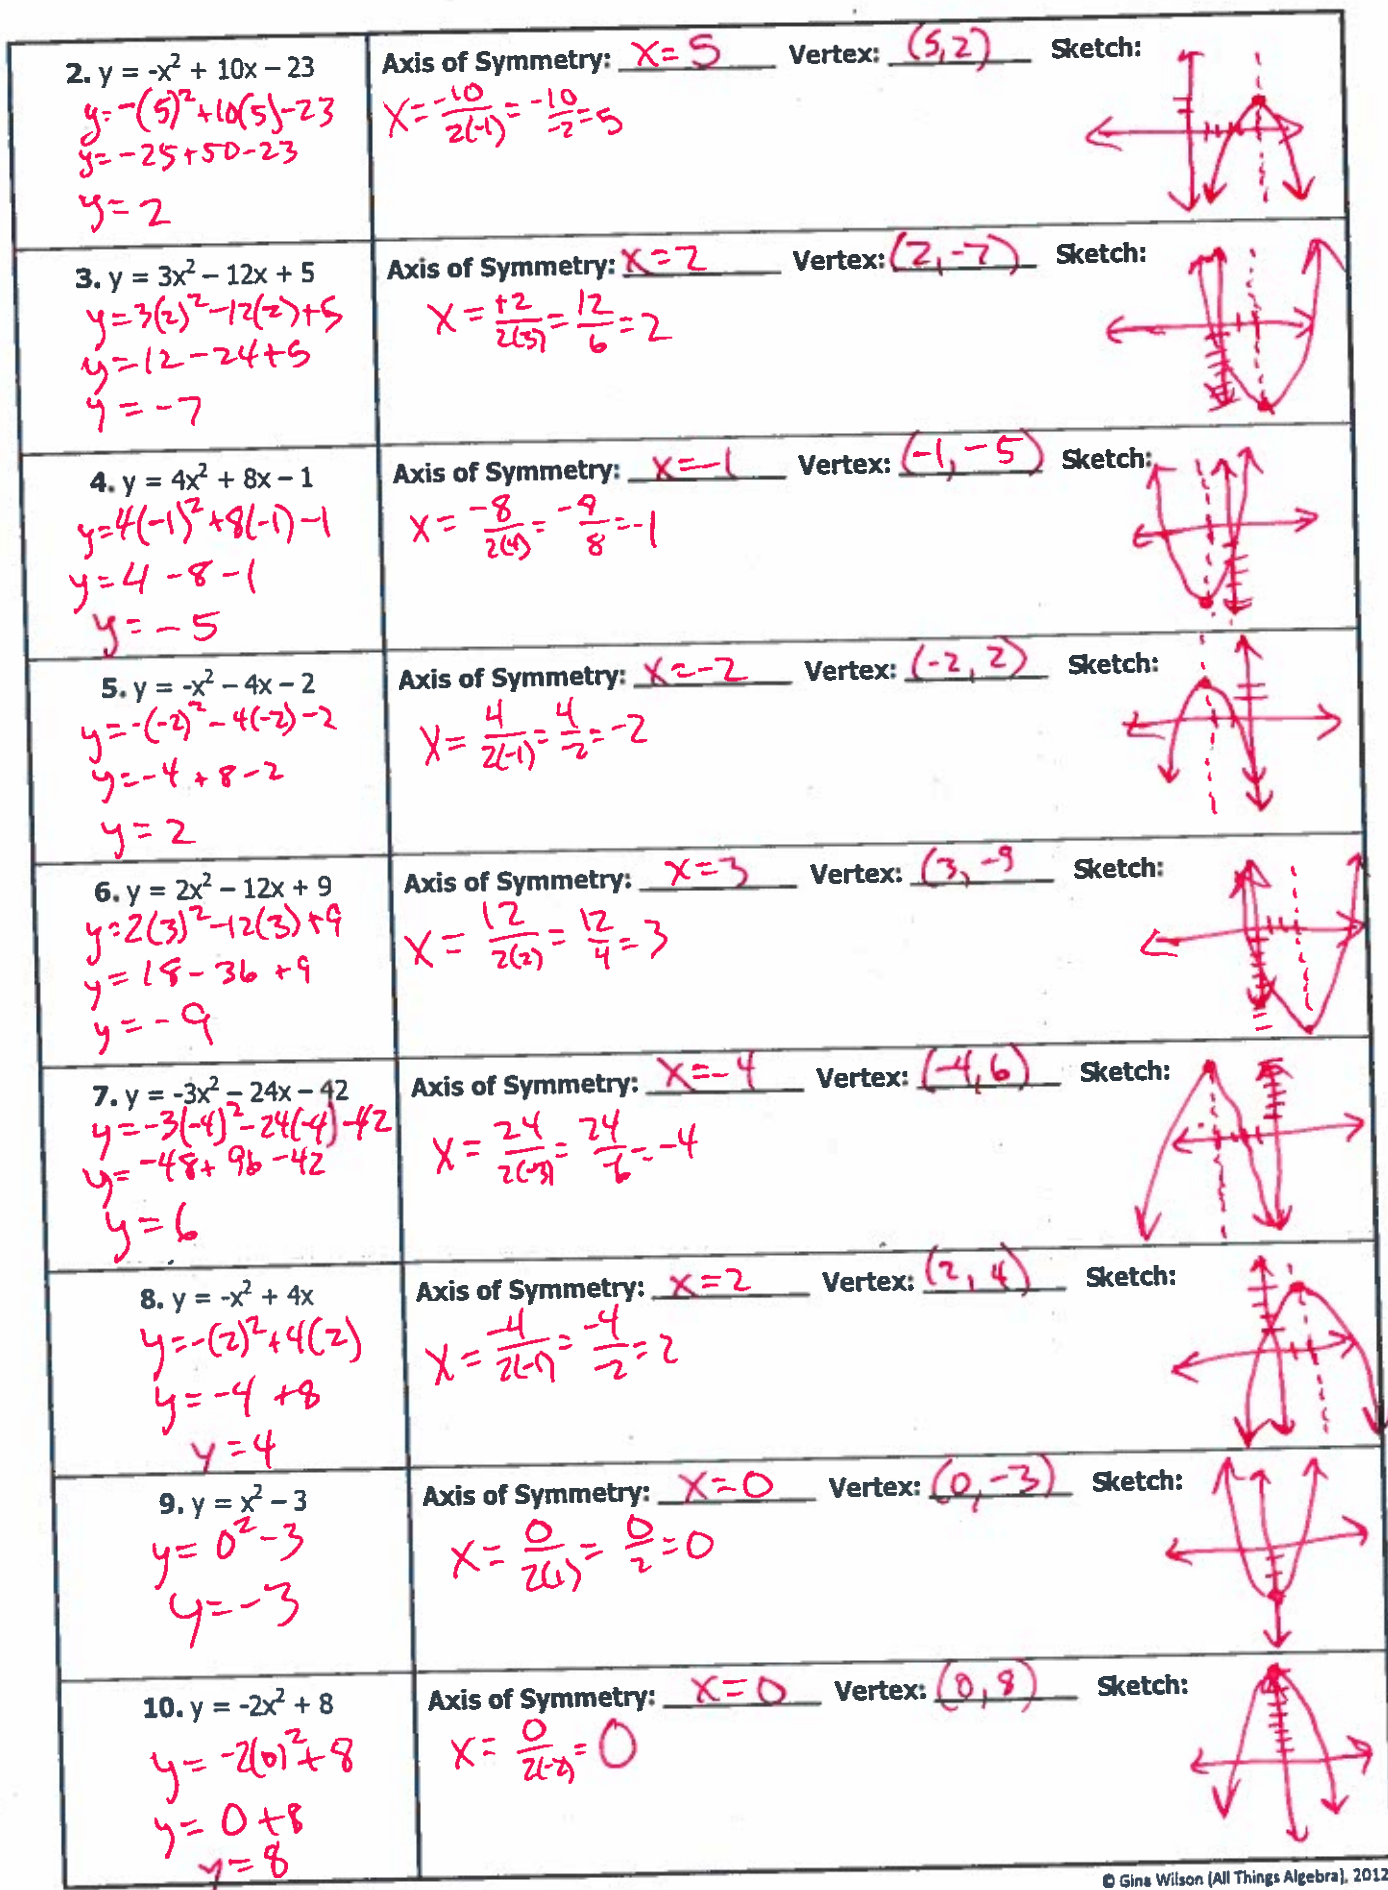 2. y = -x² + 10x – 23
y=-(5)²+10(5)-23
y=-25+50-23
y=2
Axis of Symmetry: x=5 Vertex: (5,2) Sketch:
x=-10/2(-1)=-10/-2=5
3. y = 3x² – 12x + 5
y=3(2)²-12(2)+5
y=12-24+5
y=-7
Axis of Symmetry: x=2 Vertex: (2,-7) Sketch:
x=12/2(3)=12/6=2
4. y = 4x² + 8x – 1
y=4(-1)²+8(-1)-1
y=4-8-1
y=-5
Axis of Symmetry: x=-1 Vertex: (-1,-5) Sketch:
x=-8/2(4)=-8/8=-1
5. y = -x² – 4x – 2
y=-(-2)²-4(-2)-2
y=-4+8-2
y=2
Axis of Symmetry: x=-2 Vertex: (-2,2) Sketch:
x=4/2(-1)=4/-2=-2
6. y = 2x² – 12x + 9
y=2(3)²-12(3)+9
y=18-36+9
y=-9
Axis of Symmetry: x=3 Vertex: (3,-9 Sketch:
x=12/2(2)=12/4=3
7. y = -3x² – 24x – 42
y=-3(-4)²-24(-4)-42
y=-48+96-42
y=6
Axis of Symmetry: x=-4 Vertex: (-4,6) Sketch:
x=24/2(-3)=24/-6=-4
8. y = -x² + 4x
y=-(2)²+4(2)
y=-4+8
y=4
Axis of Symmetry: x=2 Vertex: (2,4) Sketch:
x=-4/2(-1)=-4/-2=2
9. y = x² – 3
y=0²-3
y=-3
Axis of Symmetry: x=0 Vertex: (0,-3) Sketch:
x=0/2(1)=0/2=0
10. y = -2x² + 8
y=-2(0)²+8
y=0+8
y=8
Axis of Symmetry: x=0 Vertex: (0,8) Sketch:
x=0/2(-2)=0
© Gina Wilson (All Things Algebra), 2012